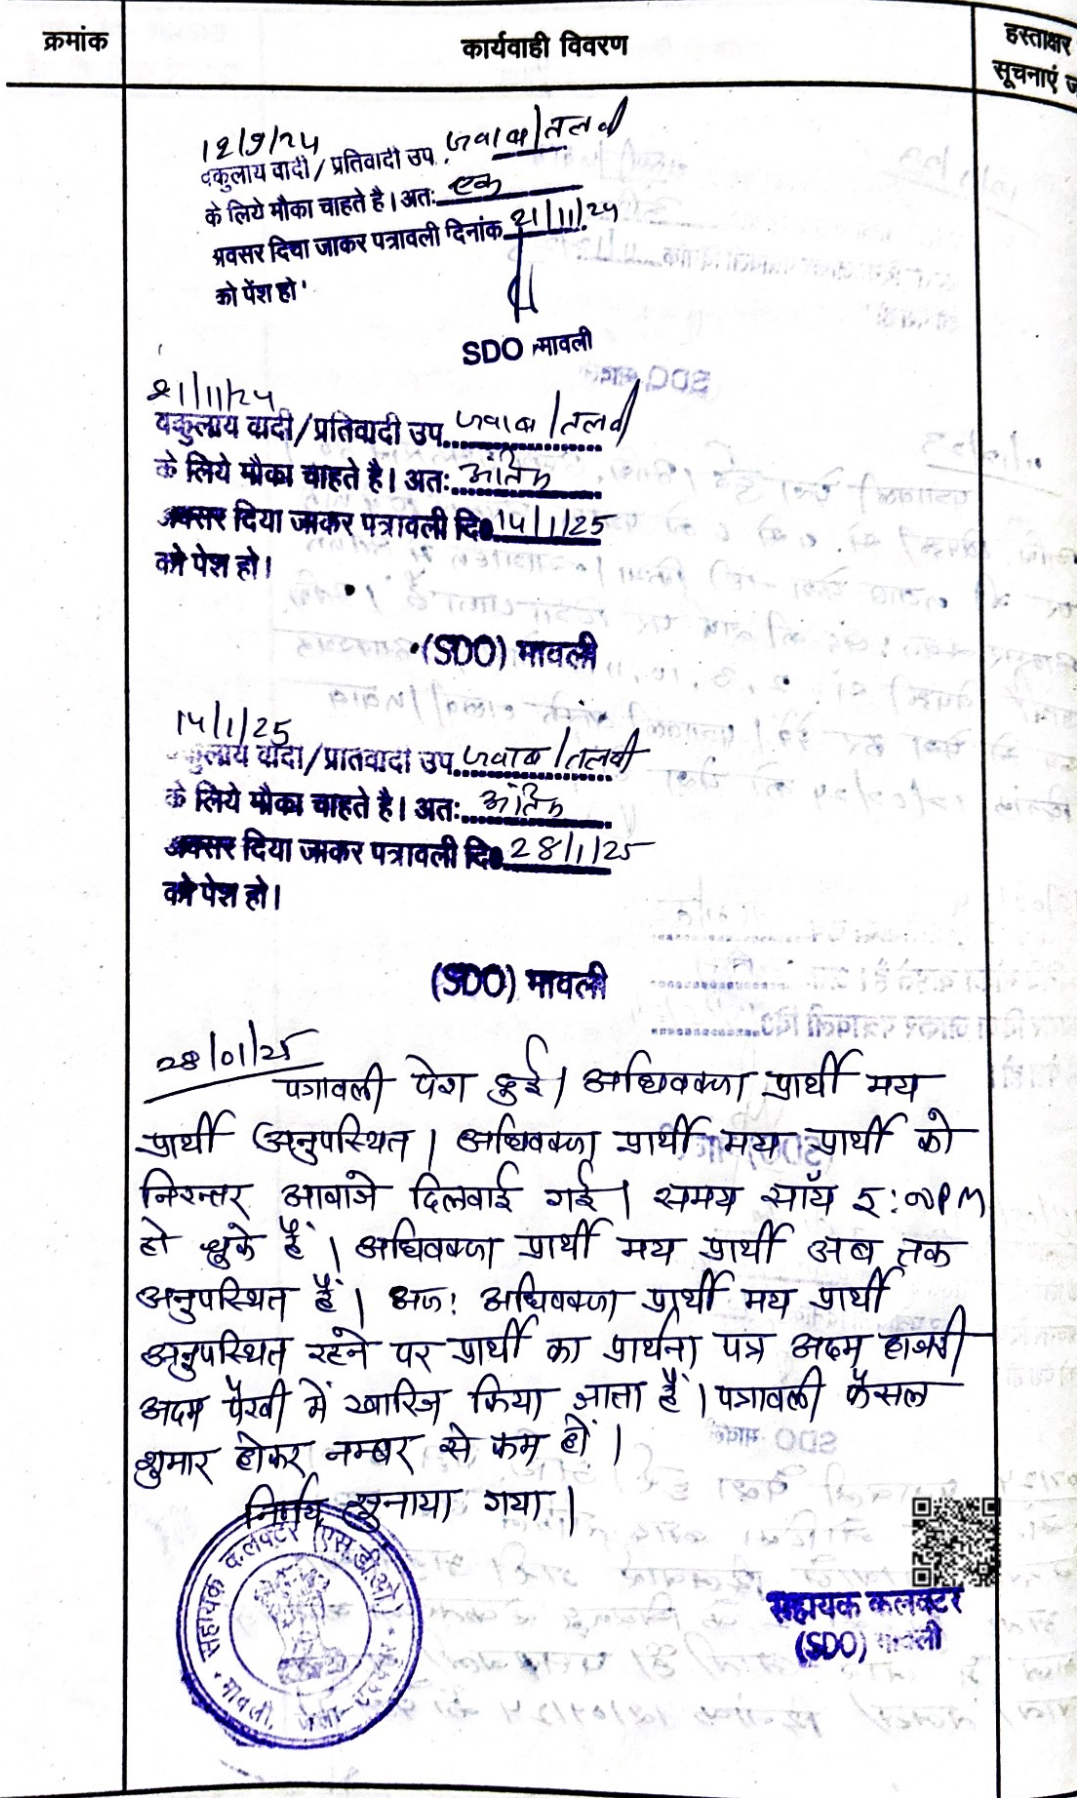 क्रमांक
कार्यवाही विवरण
हस्ताक्षर
सूचनाएं ज
12/9/24
वकुलाय वादी / प्रतिवादी उप. जवाब/तलवी
के लिये मौका चाहते है। अतः एक
अवसर दिया जाकर पत्रावली दिनांक 21/11/24
को पेंश हो
SDO मावली
21/11/24
वकुलाय वादी/प्रतिवादी उप. जवाब/तलवी
के लिये मौका चाहते है। अतः अंतिम
अवसर दिया जाकर पत्रावली दि० 14/1/25
को पेश हो।
(SDO) मावली
14/1/25
कुलाय वादी/प्रतिवादी उप. जवाब/तलवी
के लिये मौका चाहते है। अतः अंतिम
अवसर दिया जाकर पत्रावली दि० 28/1/25
को पेश हो।
(SDO) मावली
28/01/25
पत्रावली पेश हुई। अधिवक्ता प्रार्थी मय
प्रार्थी अनुपस्थित। अधिवक्ता प्रार्थी मय प्रार्थी को
निरन्तर आवाजे दिलवाई गई। समय सॉय 5:00PM
हो चुके हैं। अधिवक्ता प्रार्थी मय प्रार्थी अब तक
अनुपस्थित हैं। अतः अधिवक्ता प्रार्थी मय प्रार्थी
अनुपस्थित रहने पर प्रार्थी का प्रार्थना पत्र अदम हाजरी
अदम पैरवी में खारिज किया जाता हैं। पत्रावली फैसल
शुमार होकर नम्बर से कम हों।
निर्णय सुनाया गया।
सहायक कलक्टर (एस.डी.ओ.)
मावली, जिला-उदयपुर
सहायक कलक्टर
(SDO) मावली